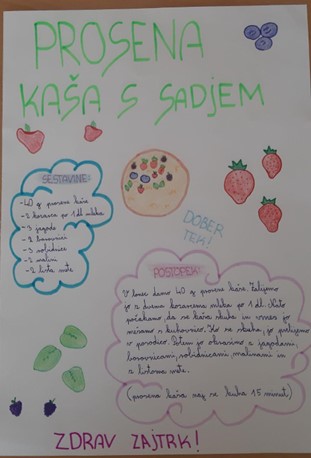 PROSENA
KAŠA S SADJEM
SESTAVINE:
-40 g prosene kaše
-2 kozarca po 1 dl mleka
-3 jagode
-2 borovnici
-3 robidnice
-2 malini
-2 lista mete
DOBER
TEK!
POSTOPEK:
V lonec damo 40 g prosene kaše. Zalijemo
jo z dvema kozarcema mleka po 1 dl. Nato
počakamo, da se kaša skuha in vmes jo
mešamo s kuhavnico. Ko se skuha, jo prelijemo
v posodico. Potem jo okrasimo z jagodami,
borovnicami, robidnicami, malinami in
z listoma mete.
(prosena kaša naj se kuha 15 minut)
ZDRAV ZAJTRK!